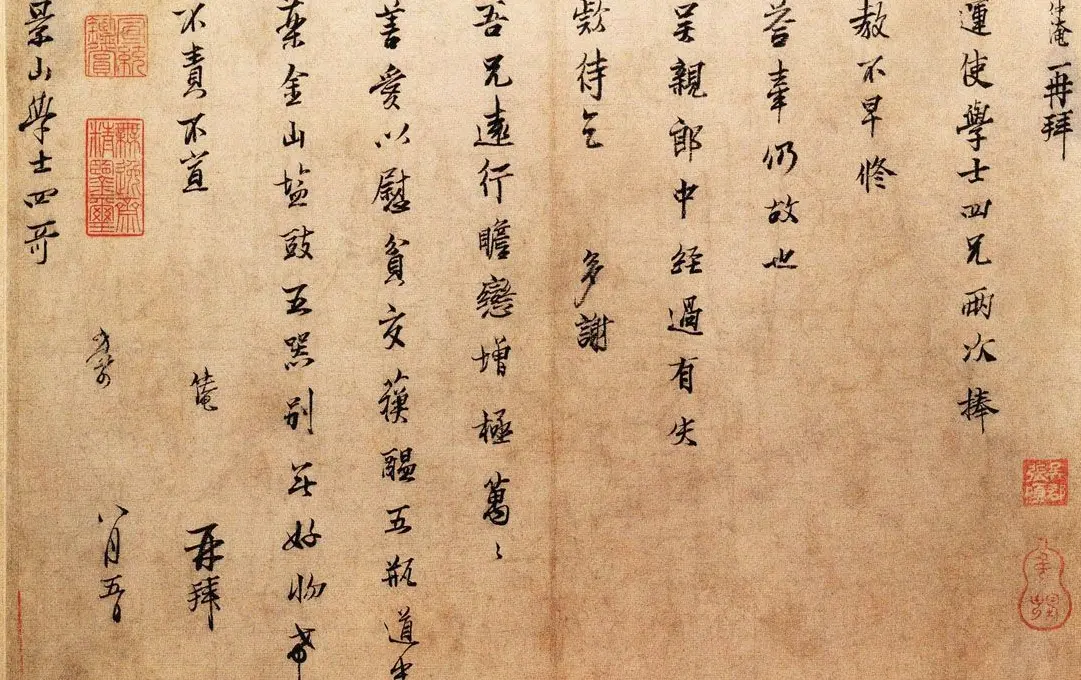 仲淹再拜
運使學士四兄兩次捧
教不早修
荅奉仍故也
吴親郎中經過有失
款待乞 多謝
吾兄遠行瞻戀增極萬〻
善愛以慰貧交蘓醖五瓶道中
藥金山塩豉五器别無好物
不責不宣 淹 再拜
景山學士四哥 八月五日
吳郡張